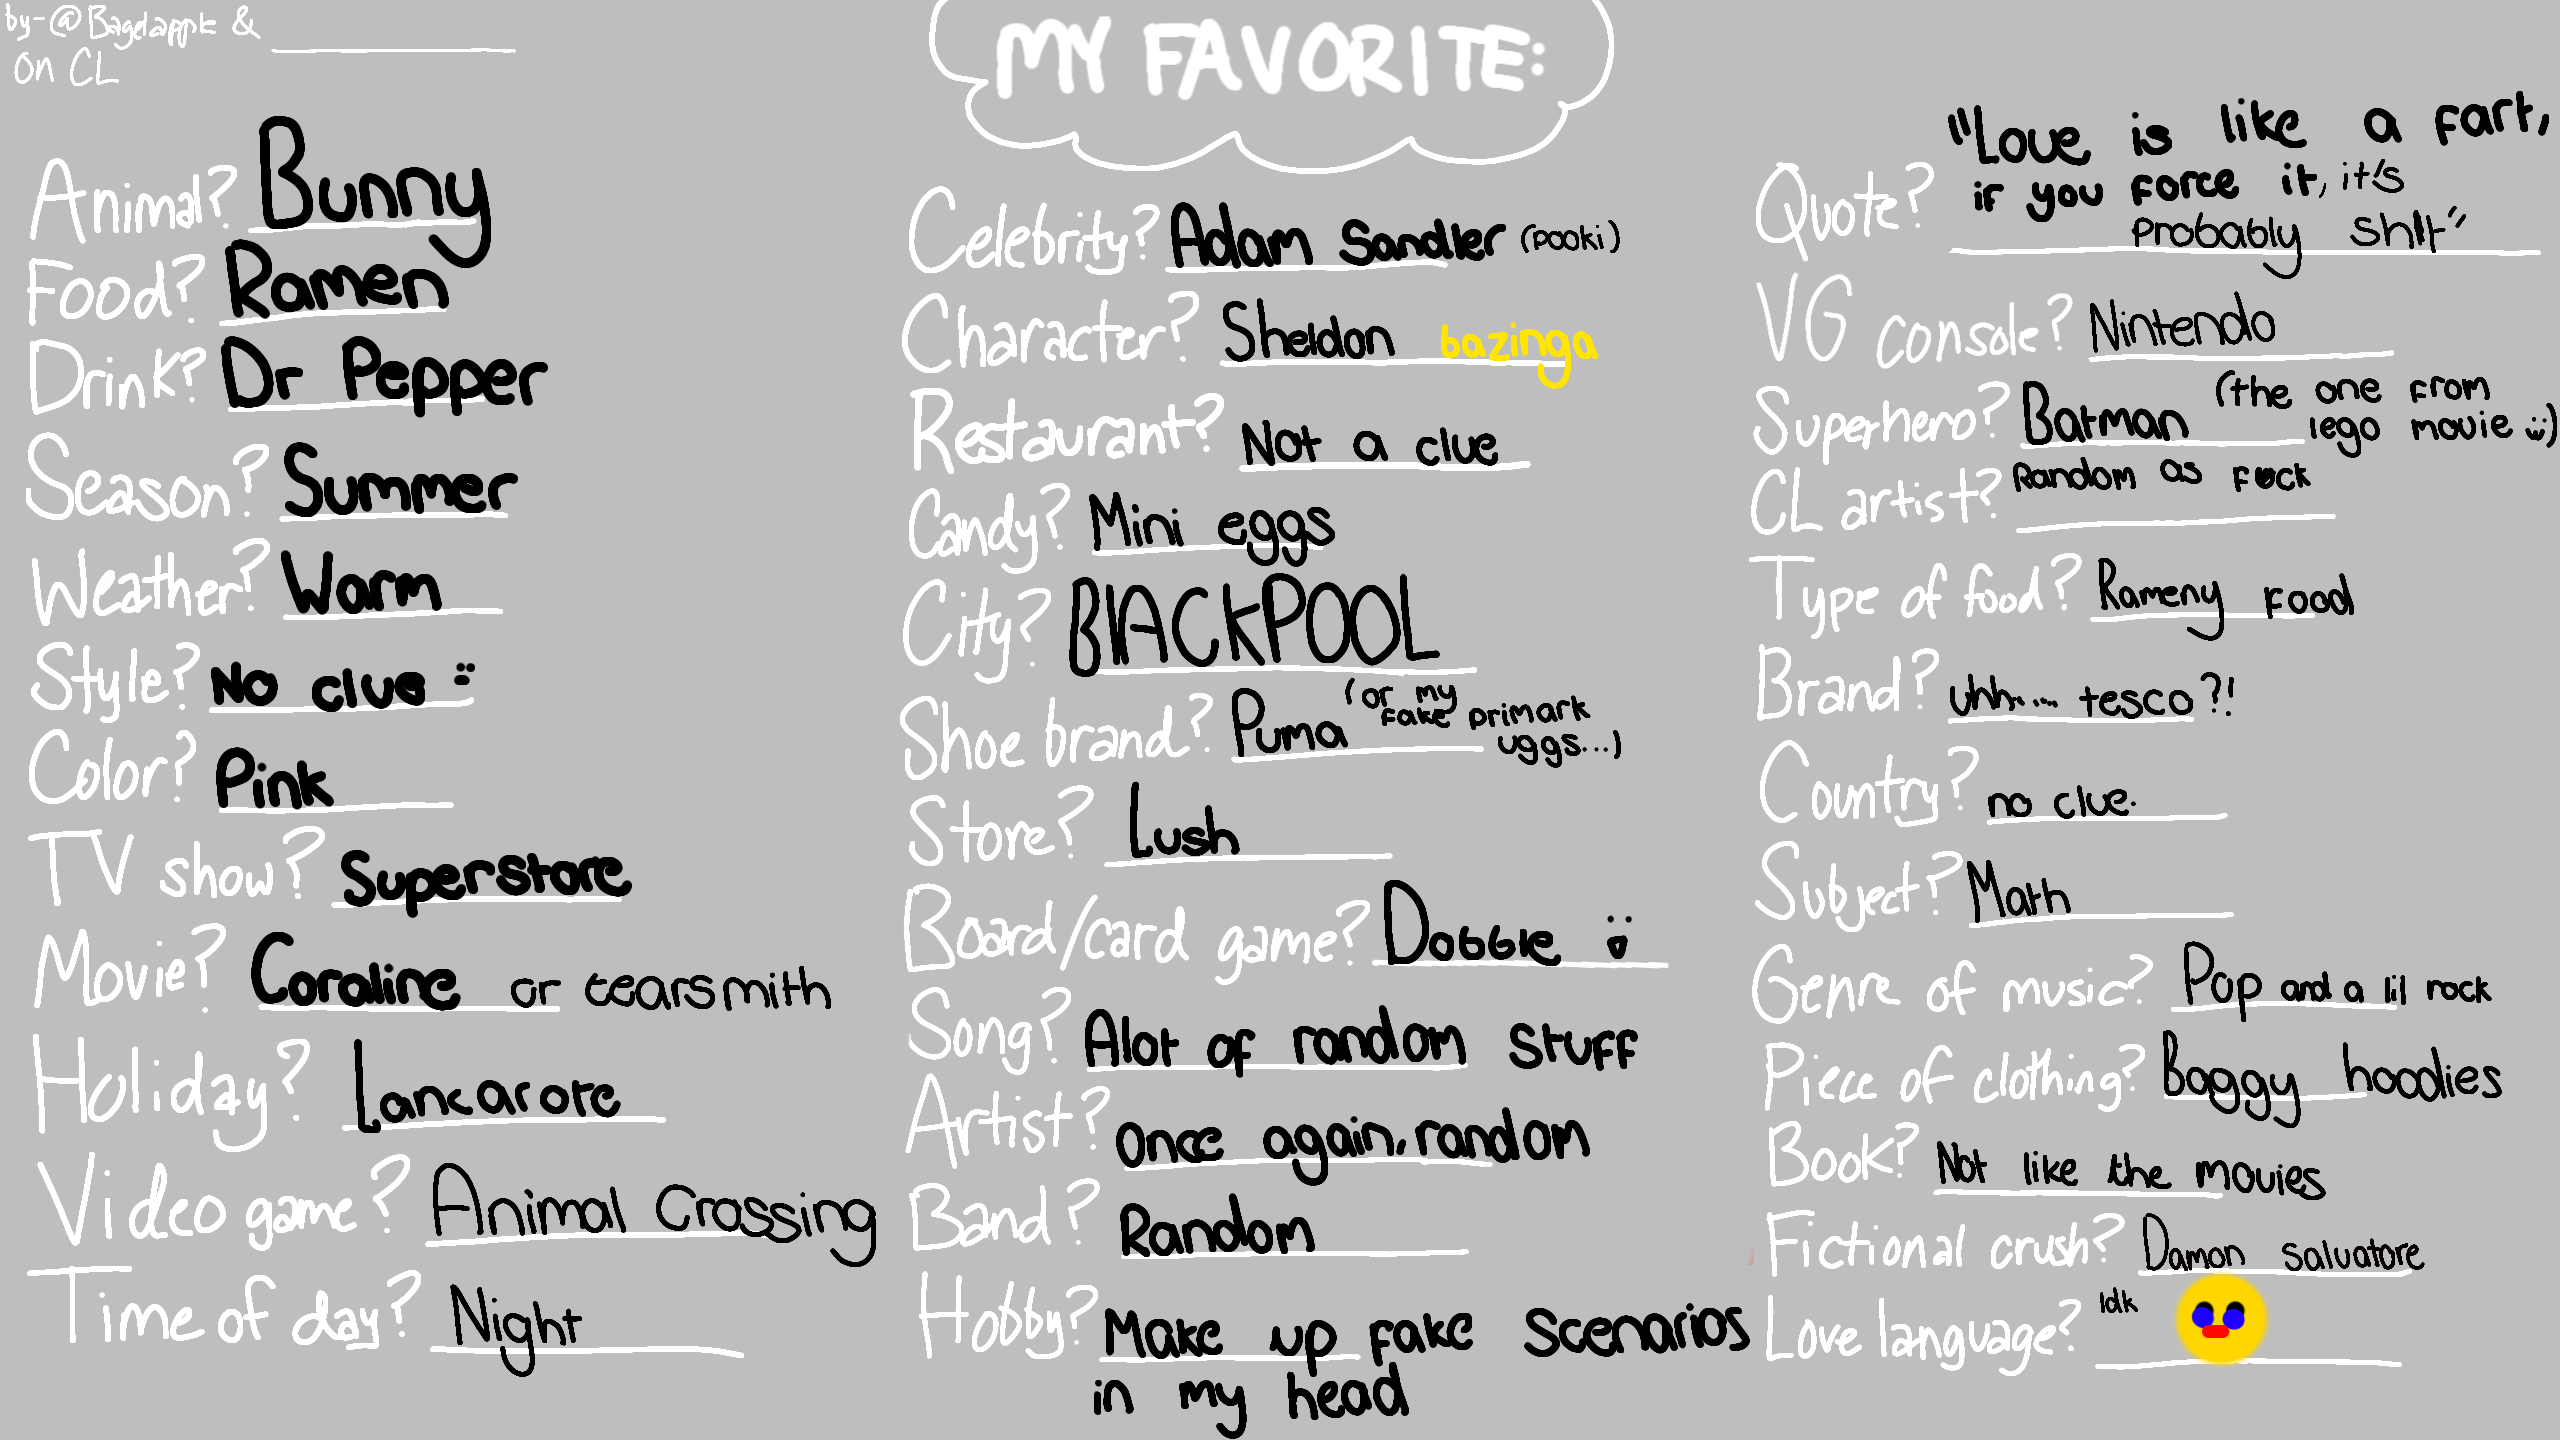 by-@Bagelapple &
on CL
MY FAVORITE:
Animal? Bunny
Food? Ramen
Drink? Dr Pepper
Season? Summer
Weather? Warm
Style? No clue
Color? Pink
TV show? Superstore
Movie? Coraline or tearsmith
Holiday? Lancarote
Video game? Animal Crossing
Time of day? Night
Celebrity? Adam Sandler (pooki)
Character? Sheldon bazinga
Restaurant? Not a clue
Candy? Mini eggs
City? BlACKPOOL
Shoe brand? Puma (or my
fake primark
uggs...)
Store? Lush
Board/card game? Dobble
Song? Alot of random stuff
Artist? once again, random
Band? Random
Hobby? Make up fake scenarios
in my head
Quote? "Love is like a fart,
if you force it, it's
probably sh!t"
VG console? Nintendo
Superhero? Batman (the one from
lego movie :))
CL artist? Random as fuck
Type of food? Rameny food
Brand? uhh.... tesco?!
Country? no clue.
Subject? Math
Genre of music? Pop and a lil rock
Piece of clothing? Baggy hoodies
Book? Not like the movies
Fictional crush? Damon salvatore
Love language? Idk